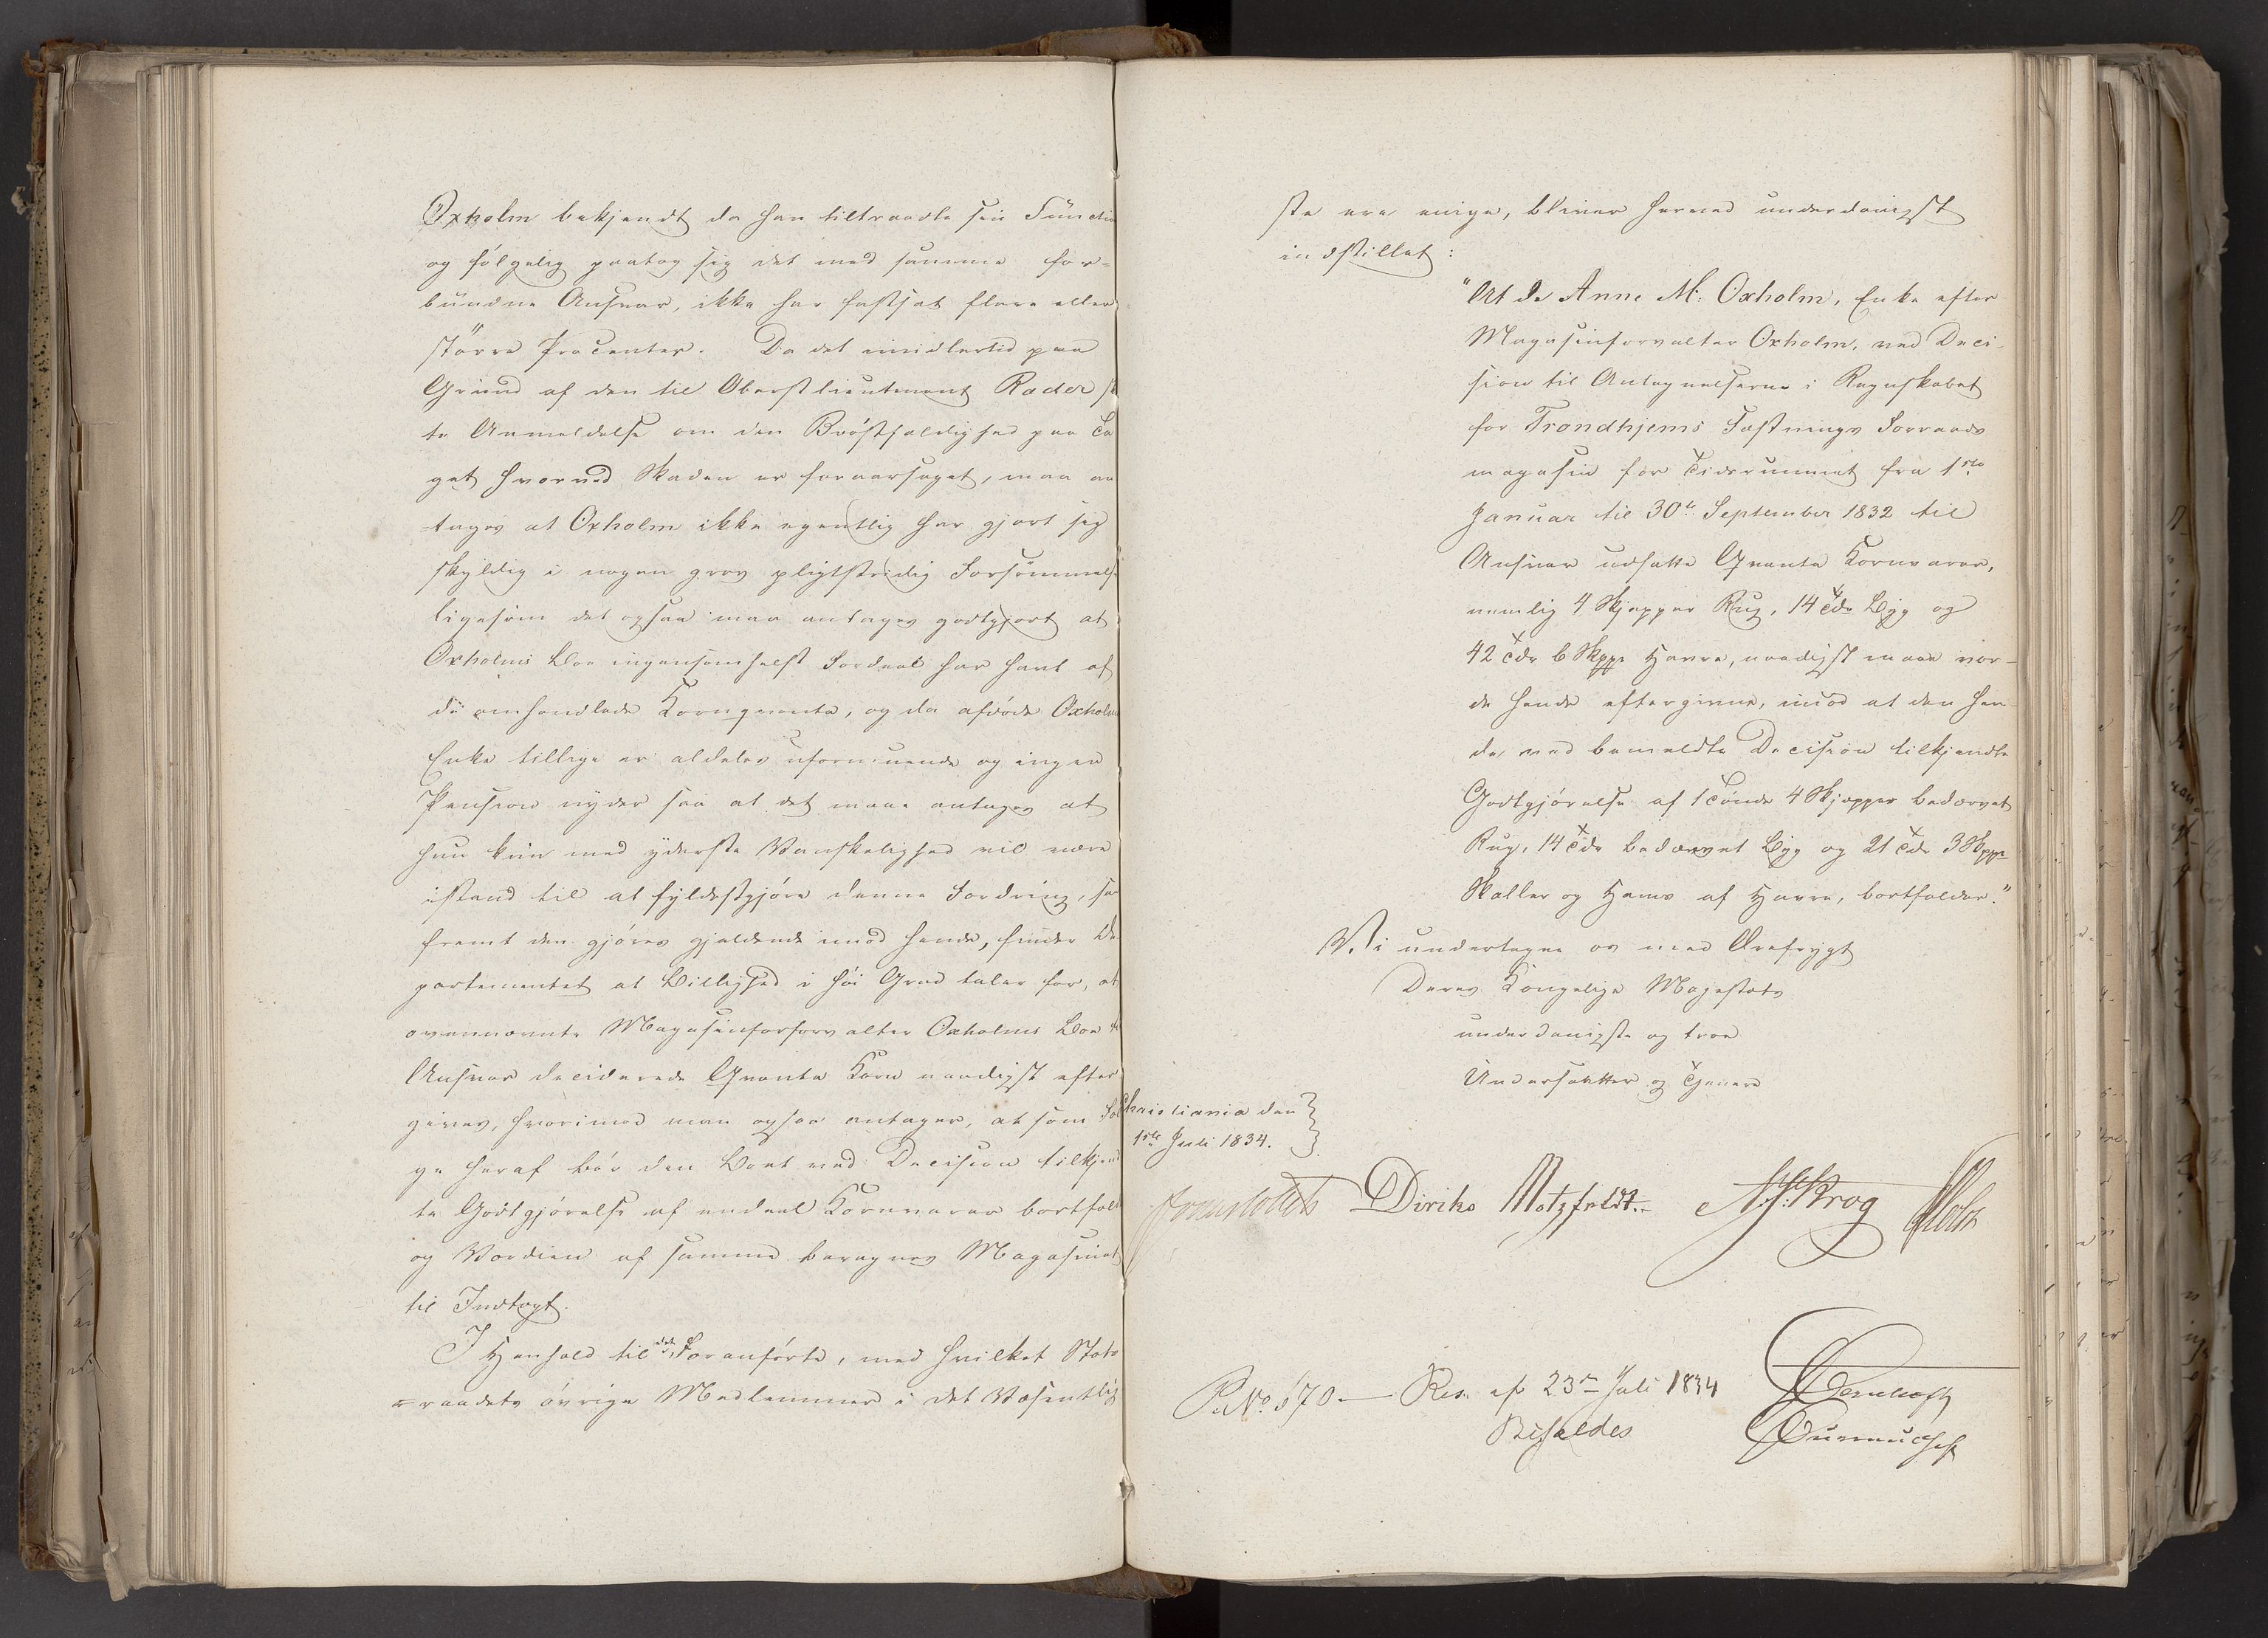 Oxholm bekjendt da han tiltraadte sin Function
og følgelig paatog sig det med samme for-
bundne Ansvar, ikke har fastsat flere eller
større Procenter. Da det imidlertid paa
Grund af den til Oberstlieutenant Ræder ske-
te Anmeldelse om den Brøstfældighed paa Ta-
get hvorved Skaden er foraarsaget, maa an-
tages at Oxholm ikke egentlig har gjort sig
skyldig i nogen grov pligtstridig Forsømmelse
ligesom det ogsaa maa antages godtgjort at
Oxholms Boe ingensomhelst Fordeel har havt af
de omhandlede Kornqvanta, og da afdøde Oxholms
Enke tillige er aldeles uformuende og ingen
Pension nyder saa at det maae antages at
hun kun med yderste Vanskelighed vil være
istand til at fyldestgjøre denne Fordring, saa-
fremt den gjøres gjældende imod hende, finder De-
partementet at Billighed i høi Grad taler for, at
ovennævnte Magasinforforvalter Oxholms Boe til
Ansvar deciderede Qvanta Korn naadigst efter-
gives, hvorimod man ogsaa antager, at som Føl-
ge heraf bør den Boet ved Decision tilkjend-
te Godtgjørelse af endeel Kornvarer bortfalde
og Værdien af samme beregnes Magasinet
til Indtægt.
I Henhold til det Foranførte, med hvilket Stats-
raadets øvrige Medlemmer i det Væsentlig-
ste ere enige, bliver herved underdanigst
indstillet:
"At de Anne M. Oxholm, Enke efter
Magasinforvalter Oxholm, ved Deci-
sion til Antegnelserne i Regnskabet
for Trondhjems Fæstnings Forraads
magasin for Tidsrummet fra 1ste
Januar til 30te September 1832 til
Ansvar udsatte Qvanta Kornvarer,
nemlig 4 Skjepper Rug, 14 Tdr Byg og
42 Tdr 6 Skppr Havre, naadigst maae vor-
de hende eftergivne, imod at den hen-
de ved bemeldte Decision tilkjendte
Godtgjørelse af 1 Tønde 4 Skjepper bedærvet
Rug, 14 Tdr bedærvet Byg og 21 Tdr 3 Skppr
Skaller og Hams af Havre, bortfalder."
Vi undertegne os med Ærefrygt
Deres Kongelige Majestæts
underdanigste og troe
Undersaatter og Tjenere
Christiania den
1ste Juli 1834.
Diriks Motzfeldt. Krog Holst
P. No 570 — Res. af 23de Juli 1834
Bifaldes